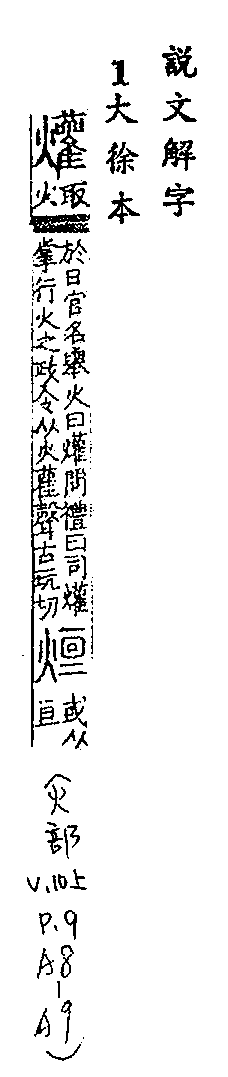 説文解字
1大徐本
爟
取火
於日官名舉火曰爟周禮曰司爟
掌行火之政令从火雚聲古玩切
烜
或从
亘
(火部 v.10上 p.9 A8-A9)